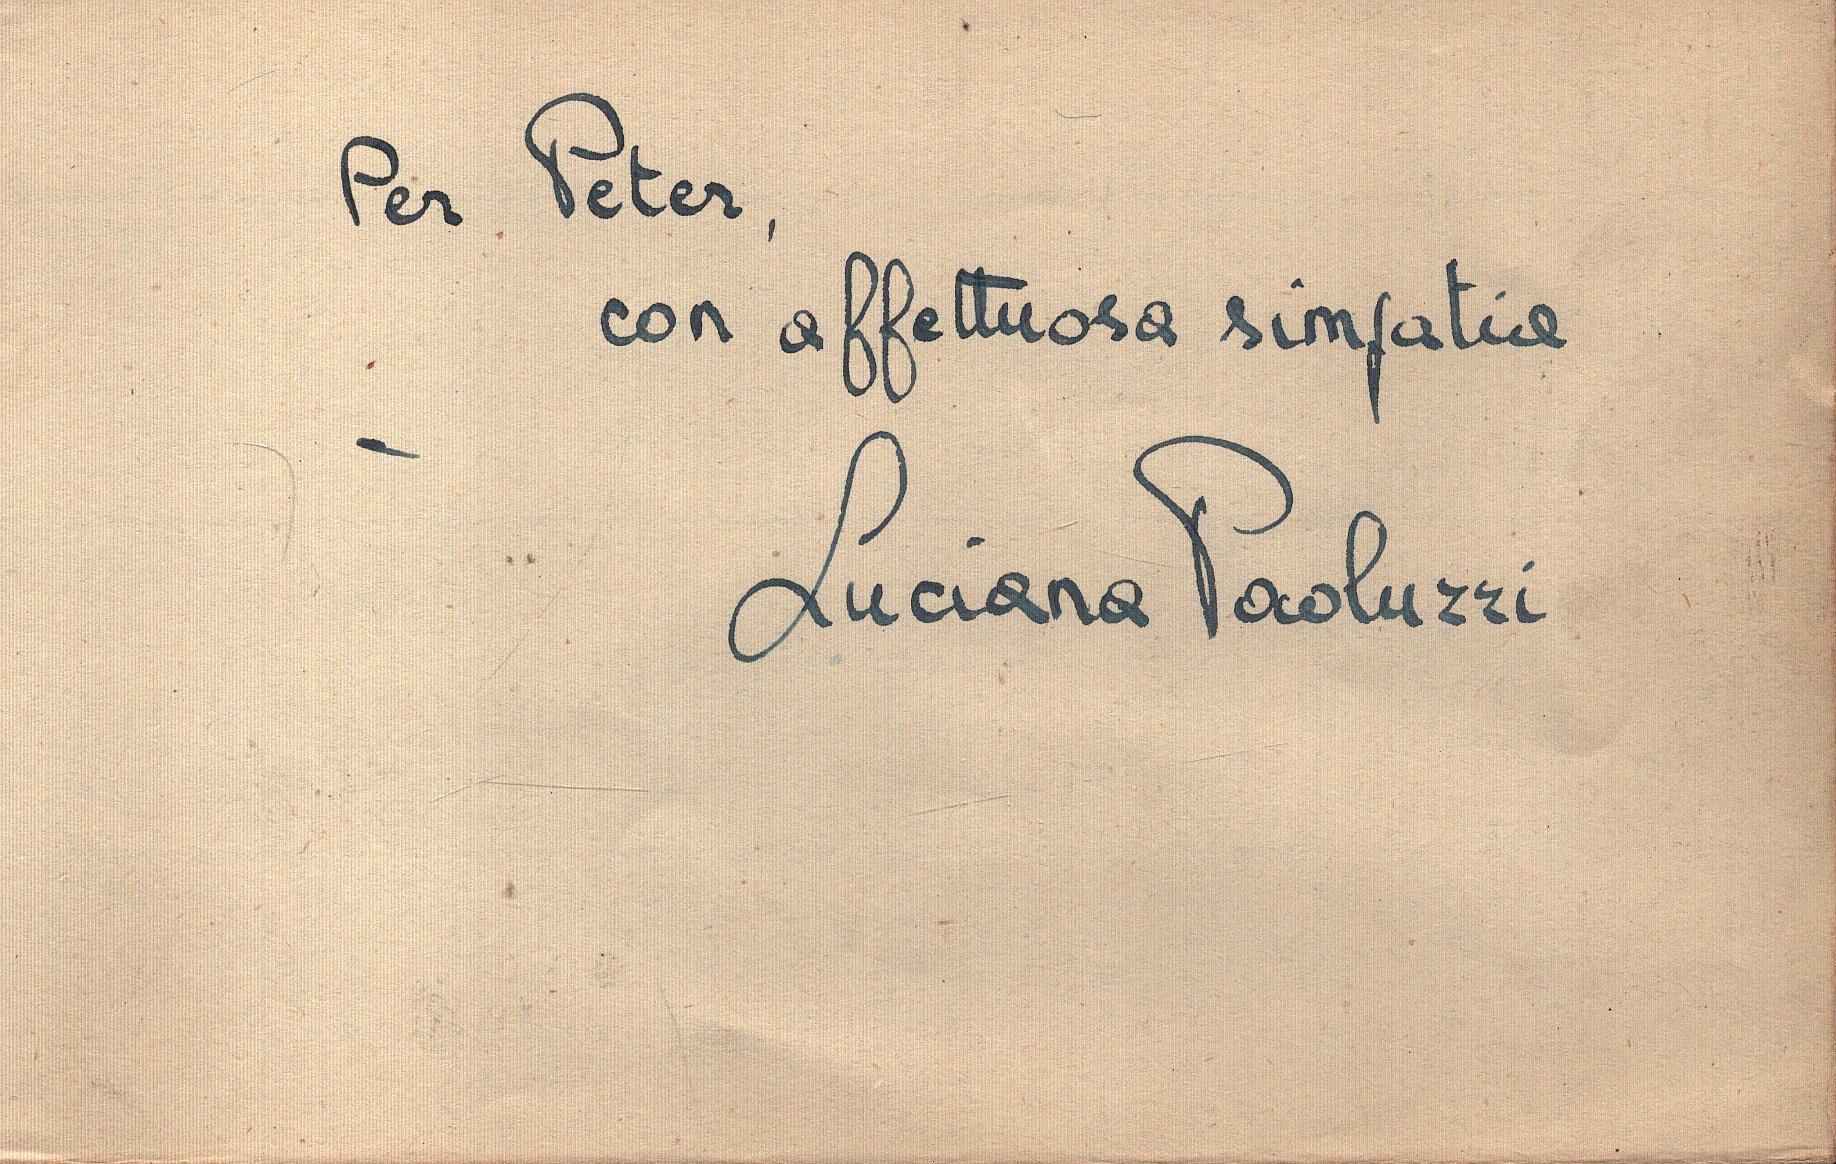 Per Peter,
con affettuosa simpatia
-
Luciana Paoluzzi